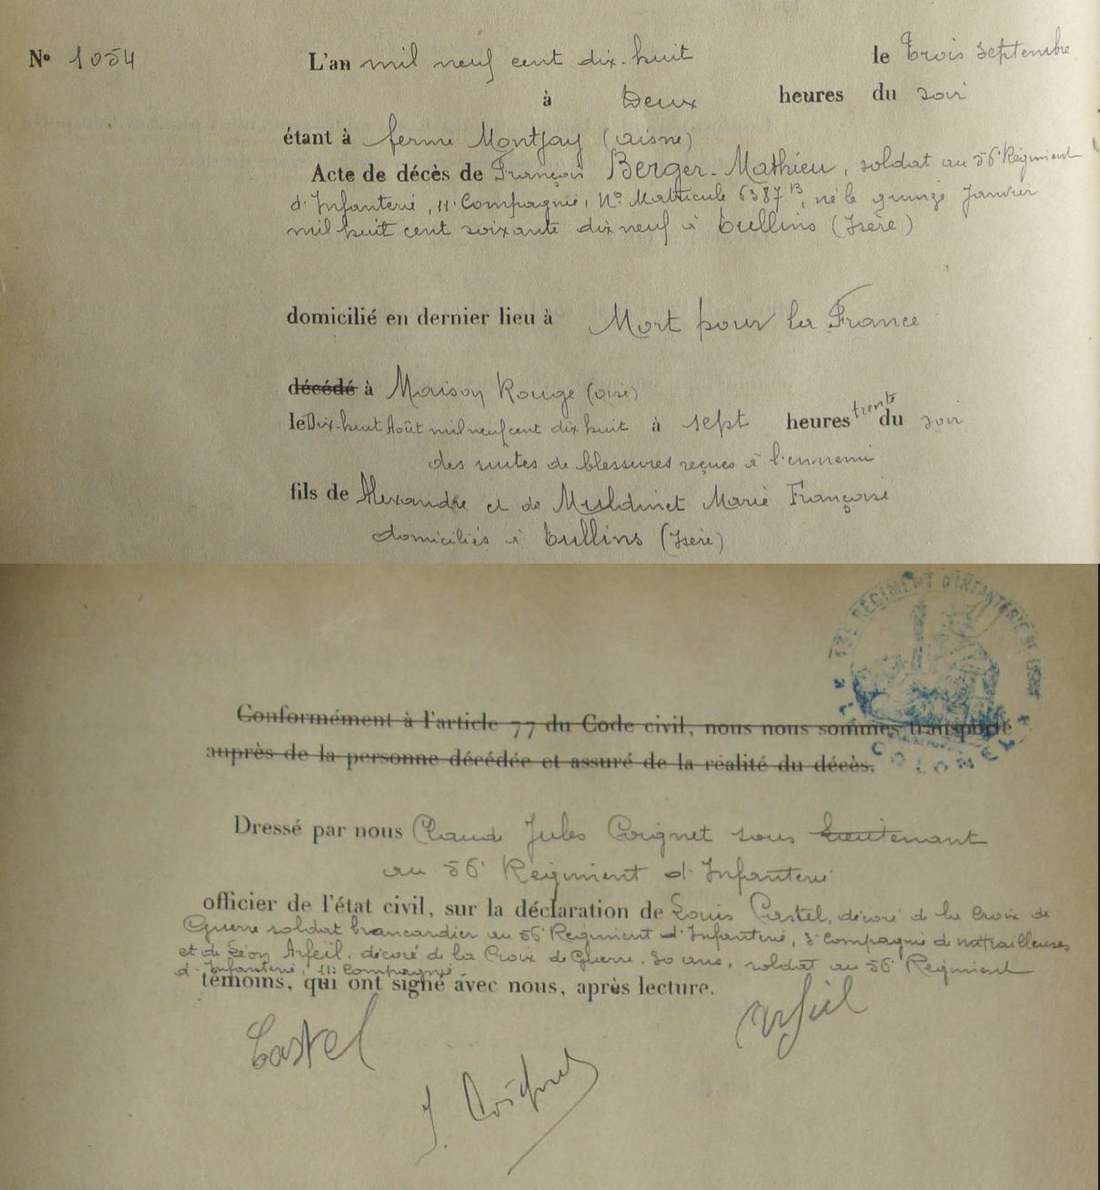 N° 1054
L'an mil neuf cent dix-huit le Trois Septembre
à Deux heures du soir
étant à ferme Montjay (Aisne)
Acte de décès de François Berger-Mathieu, soldat au 56e Régiment
d'Infanterie, 11e Compagnie, N° Matricule 6387 13, né le quinze Janvier
mil huit cent soixante dix neuf à Tullins (Isère)
domicilié en dernier lieu à Mort pour la France
décédé à Maison Rouge (Oise)
le Dix-huit Août mil neuf cent dix huit à sept heures trente du soir
des suites de blessures reçues à l'ennemi
fils de Alexandre et de Marie Françoise
domiciliés à Tullins (Isère)
RÉGIMENT D'INFANTERIE
COLONEL
Conformément à l'article 77 du Code civil, nous nous sommes transporté
auprès de la personne décédée et assuré de la réalité du décès.
Dressé par nous Claude Jules Coignet sous lieutenant
au 56e Régiment d'Infanterie
officier de l'état civil, sur la déclaration de Louis Castel, décoré de la Croix de
Guerre soldat brancardier au 56e Régiment d'Infanterie, 3e Compagnie de mitrailleuses
et de Léon Arfeil, décoré de la Croix de Guerre, 30 ans, soldat au 56e Régiment
d'Infanterie, 11e Compagnie.
témoins, qui ont signé avec nous, après lecture.
Castel Arfeil
J. Coignet